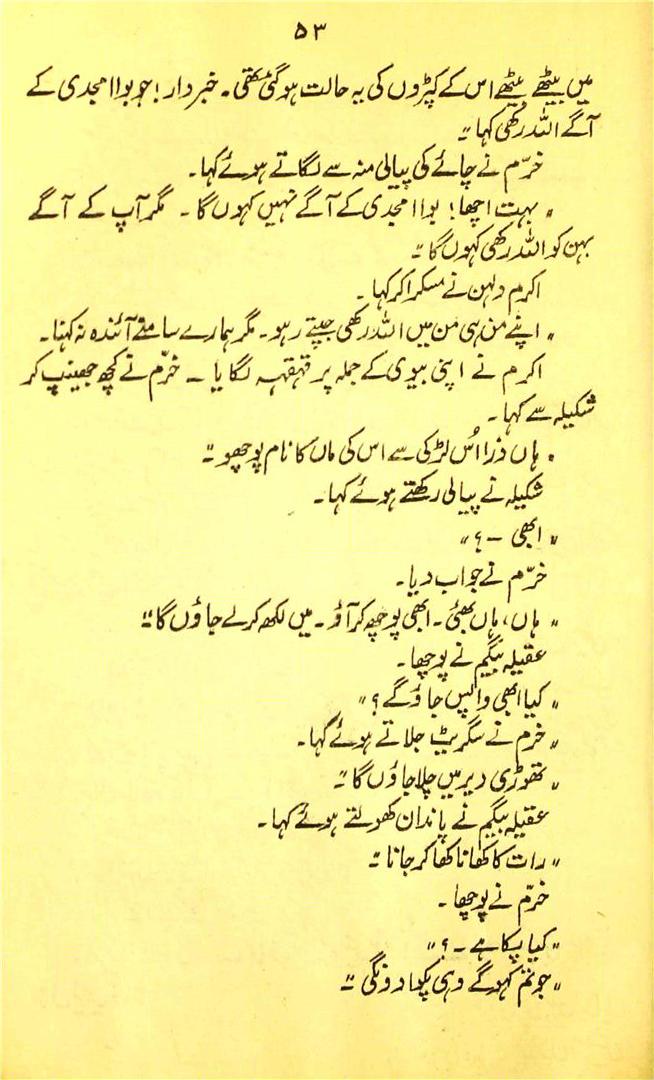 ۵۳
میں بیٹھے بیٹھے اس کے کپڑوں کی یہ حالت ہو گئی تھی۔ خبردار! جو بوا امجدی کے
آگے اللہ رکھی کہا۔"
خرّم نے چائے کی پیالی منہ سے لگاتے ہوئے کہا۔
"بہت اچھا! بوا امجدی کے آگے نہیں کہوں گا۔ مگر آپ کے آگے
بہن کو اللہ رکھی کہوں گا۔"
اکرم دلہن نے مسکرا کر کہا۔
"اپنے من ہی من میں اللہ رکھی جپتے رہو۔ مگر ہمارے سامنے آئندہ نہ کہنا۔
اکرم نے اپنی بیوی کے جملہ پر قہقہہ لگایا ۔ خرّم نے کچھ جھینپ کر
شکیلہ سے کہا۔
"ہاں ذرا اُس لڑکی سے اس کی ماں کا نام پوچھو۔"
شکیلہ نے پیالی رکھتے ہوئے کہا۔
"ابھی ۔ ؟"
خرّم نے جواب دیا۔
"ہاں، ہاں بھئی۔ ابھی پوچھ کر آؤ۔ میں لکھ کر لے جاؤں گا۔"
عقیلہ بیگم نے پوچھا۔
"کیا ابھی واپس جاؤ گے؟"
"خرم نے سگریٹ جلاتے ہوئے کہا۔
"تھوڑی دیر میں چلا جاؤں گا۔"
عقیلہ بیگم نے پاندان کھولتے ہوئے کہا۔
"رات کا کھانا کھا کر جانا۔"
خرّم نے پوچھا۔
"کیا پکا ہے۔؟"
"جو تم کہو گے وہی پکوا دونگی۔"